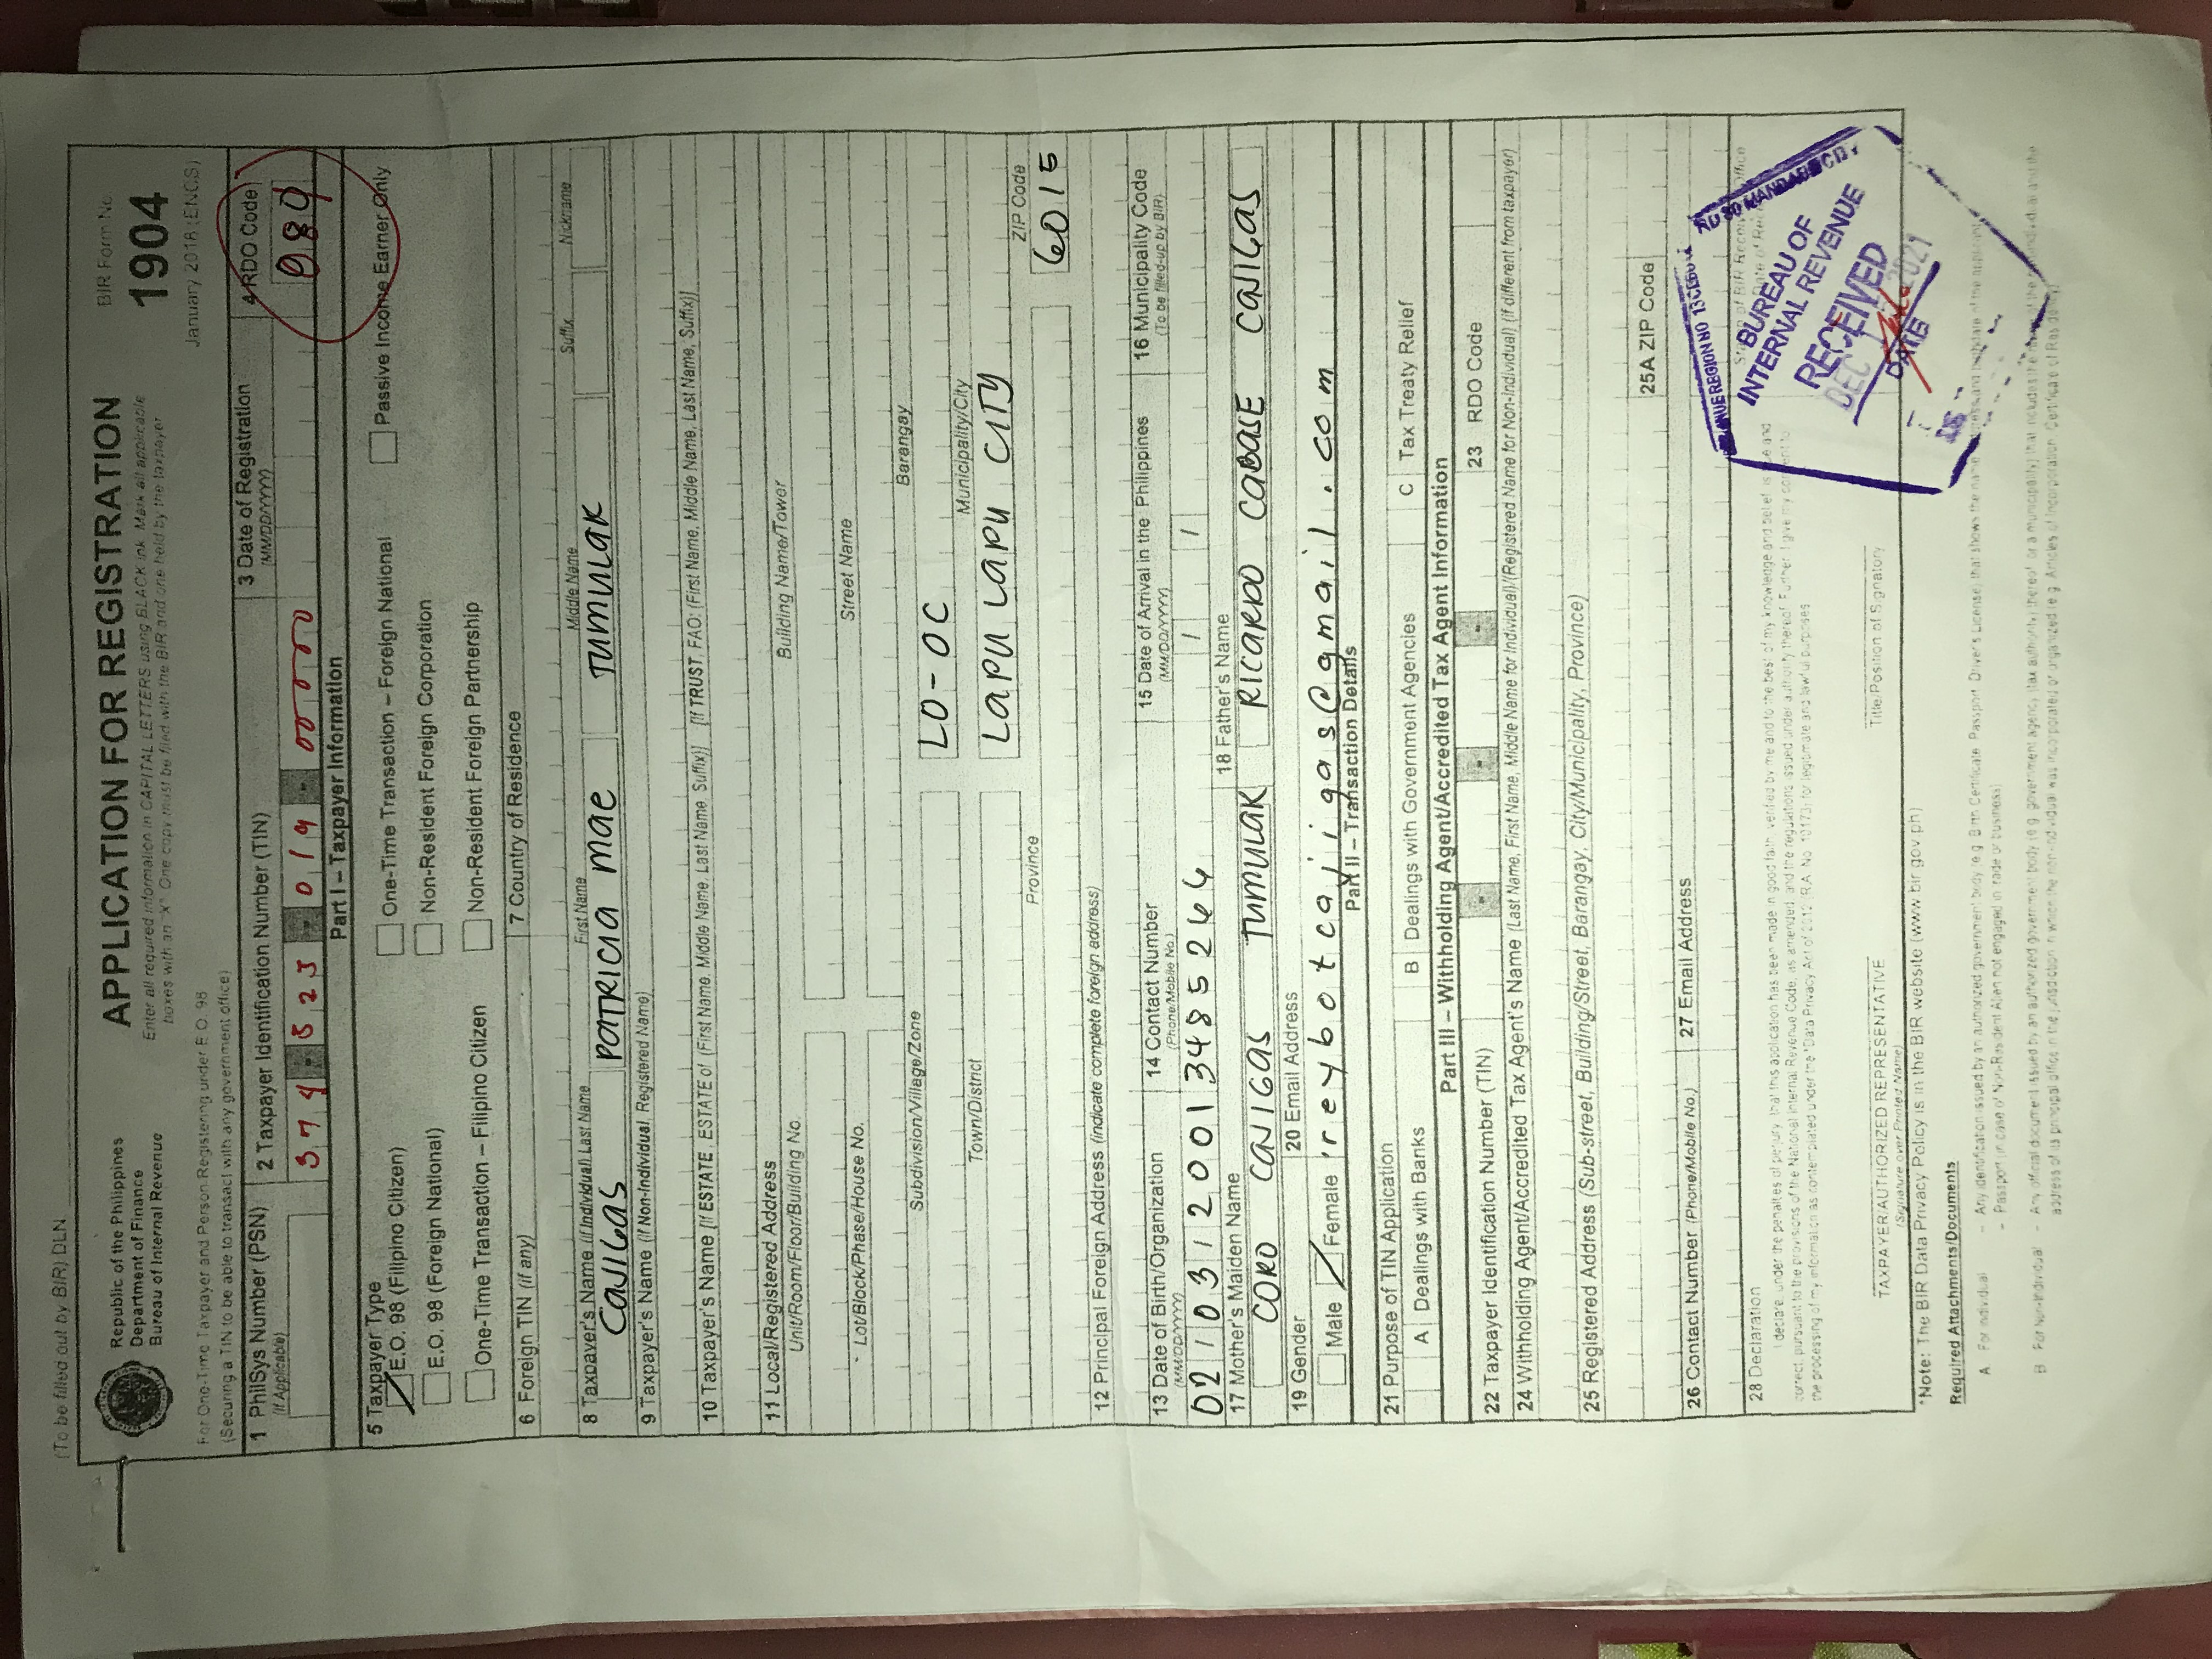 (To be filled out by BIR) DLN:
Republic of the Philippines
Department of Finance
Bureau of Internal Revenue
APPLICATION FOR REGISTRATION
Enter all required information in CAPITAL LETTERS using BLACK ink. Mark all applicable
boxes with an "X". One copy must be filed with the BIR and one held by the taxpayer
BIR Form No.
1904
January 2018 (ENCS)
For One-Time Taxpayer and Person Registering under E.O. 98
(Securing a TIN to be able to transact with any government office)
1 PhilSys Number (PSN)
(If Applicable)
2 Taxpayer Identification Number (TIN)
374 - 523 - 019 - 00000
3 Date of Registration
(MM/DD/YYYY)
4 RDO Code
Part I – Taxpayer Information
5 Taxpayer Type
E.O. 98 (Filipino Citizen)
One-Time Transaction – Foreign National
Passive Income Earner Only
E.O. 98 (Foreign National)
Non-Resident Foreign Corporation
One-Time Transaction – Filipino Citizen
Non-Resident Foreign Partnership
6 Foreign TIN (if any)
7 Country of Residence
8 Taxpayer's Name (If Individual) Last Name
First Name
Middle Name
Suffix
Nickname
CAJIGAS
PATRICIA MAE
TUMULAK
9 Taxpayer's Name (If Non-Individual, Registered Name)
10 Taxpayer's Name [If ESTATE, ESTATE of (First Name, Middle Name, Last Name, Suffix)] [If TRUST, FAO: (First Name, Middle Name, Last Name, Suffix)]
11 Local/Registered Address
Unit/Room/Floor/Building No.
Building Name/Tower
Lot/Block/Phase/House No.
Street Name
Subdivision/Village/Zone
Barangay
LO-OC
Town/District
Municipality/City
LAPU LAPU CITY
Province
ZIP Code
6015
12 Principal Foreign Address (indicate complete foreign address)
13 Date of Birth/Organization
(MM/DD/YYYY)
14 Contact Number
(Phone/Mobile No.)
15 Date of Arrival in the Philippines
(MM/DD/YYYY)
16 Municipality Code
(To be filled-up by BIR)
02/03/2001
3485264
/ /
17 Mother's Maiden Name
18 Father's Name
CORO CAJIGAS TUMULAK
RICARDO CABASE CAJIGAS
19 Gender
20 Email Address
Male
Female
reybotcajigas@gmail.com
Part II – Transaction Details
21 Purpose of TIN Application
A Dealings with Banks
B Dealings with Government Agencies
C Tax Treaty Relief
Part III – Withholding Agent/Accredited Tax Agent Information
22 Taxpayer Identification Number (TIN)
- - -
23 RDO Code
24 Withholding Agent/Accredited Tax Agent's Name (Last Name, First Name, Middle Name for Individual)/(Registered Name for Non-Individual) (If different from taxpayer)
25 Registered Address (Sub-street, Building/Street, Barangay, City/Municipality, Province)
25A ZIP Code
26 Contact Number (Phone/Mobile No.)
27 Email Address
28 Declaration
I declare, under the penalties of perjury, that this application has been made in good faith, verified by me and to the best of my knowledge and belief, is true and
correct, pursuant to the provisions of the National Internal Revenue Code, as amended, and the regulations issued under authority thereof. Further, I give my consent to
the processing of my information as contemplated under the *Data Privacy Act of 2012 (R.A. No. 10173) for legitimate and lawful purposes
BUREAU OF
INTERNAL REVENUE
RECEIVED
DEC 2021
DATE
TAXPAYER/AUTHORIZED REPRESENTATIVE
(Signature over Printed Name)
Title/Position of Signatory
*Note: The BIR Data Privacy Policy is in the BIR website (www.bir.gov.ph)
Required Attachments/Documents
A For Individual - Any identification issued by an authorized government body (e.g. Birth Certificate, Passport, Driver's License) that shows the name, address and birthdate of the applicant
- Passport (in case of Non-Resident Alien not engaged in trade or business)
B For Non-Individual - Any official document issued by an authorized government body (e.g. government agency (tax authority) thereof, or a municipality) that includes the name of the non-individual and the
address of its principal office in the jurisdiction in which the non-individual was incorporated or organized (e.g. Articles of Incorporation, Certificate of